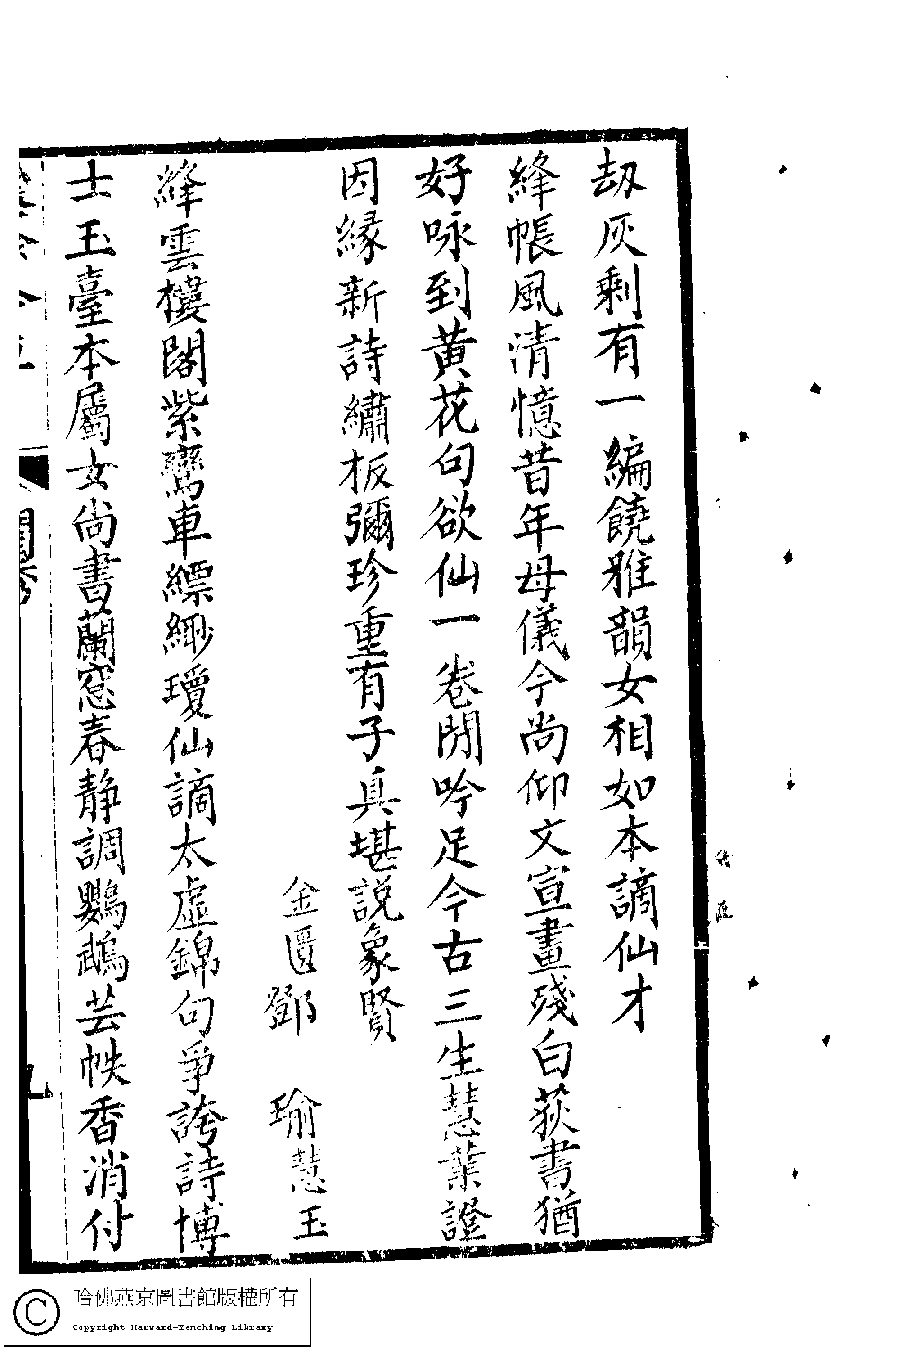 劫灰剩有一編饒雅韻女相如本謫仙才
絳帳風清憶昔年母儀今尚仰文宣畫殘白荻書猶
好咏到黄花句欲仙一卷閒吟足今古三生慧業證
因緣新詩繡板彌珍重有子真堪説象賢
金匱鄧瑜慧玉
絳雲樓閣紫鸞車縹緲瓊仙謫太虛錦句爭誇詩博
士玉臺本屬女尚書蘭窓春靜調鸚鵡芸帙香消付
閨秀
九
哈佛燕京圖書館版權所有
Copyright Harvard-Yenching Library